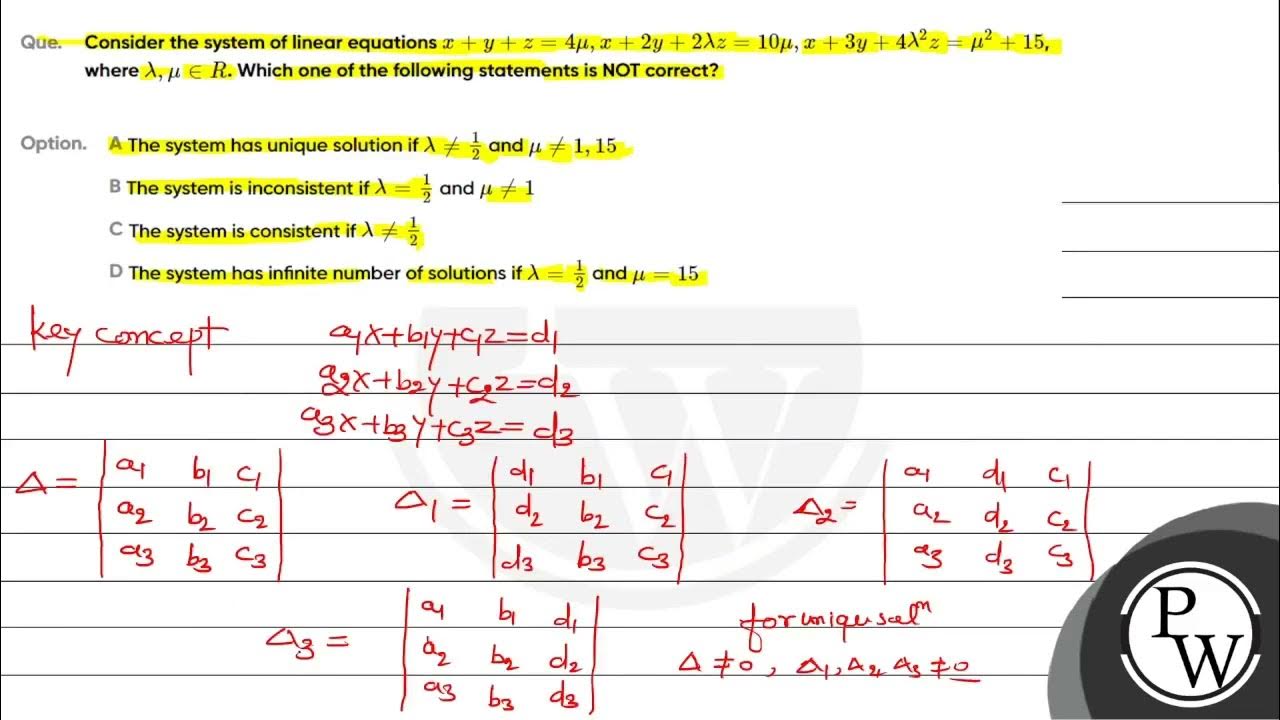 Que. Consider the system of linear equations x + y + z = 4μ, x + 2y + 2λz = 10μ, x + 3y + 4λ²z = μ² + 15,
where λ, μ ∈ R. Which one of the following statements is NOT correct?
Option. A The system has unique solution if λ ≠ 1/2 and μ ≠ 1, 15
B The system is inconsistent if λ = 1/2 and μ ≠ 1
C The system is consistent if λ ≠ 1/2
D The system has infinite number of solutions if λ = 1/2 and μ = 15
Key concept a₁x+b₁y+c₁z=d₁
a₂x+b₂y+c₂z=d₂
a₃x+b₃y+c₃z=d₃
Δ = | a₁ b₁ c₁ | Δ₁ = | d₁ b₁ c₁ | Δ₂ = | a₁ d₁ c₁ |
| a₂ b₂ c₂ | | d₂ b₂ c₂ | | a₂ d₂ c₂ |
| a₃ b₃ c₃ | | d₃ b₃ c₃ | | a₃ d₃ c₃ |
Δ₃ = | a₁ b₁ d₁ | for uniqu solⁿ
| a₂ b₂ d₂ | Δ ≠ 0, Δ₁, Δ₂, Δ₃ ≠ 0
| a₃ b₃ d₃ |
PW